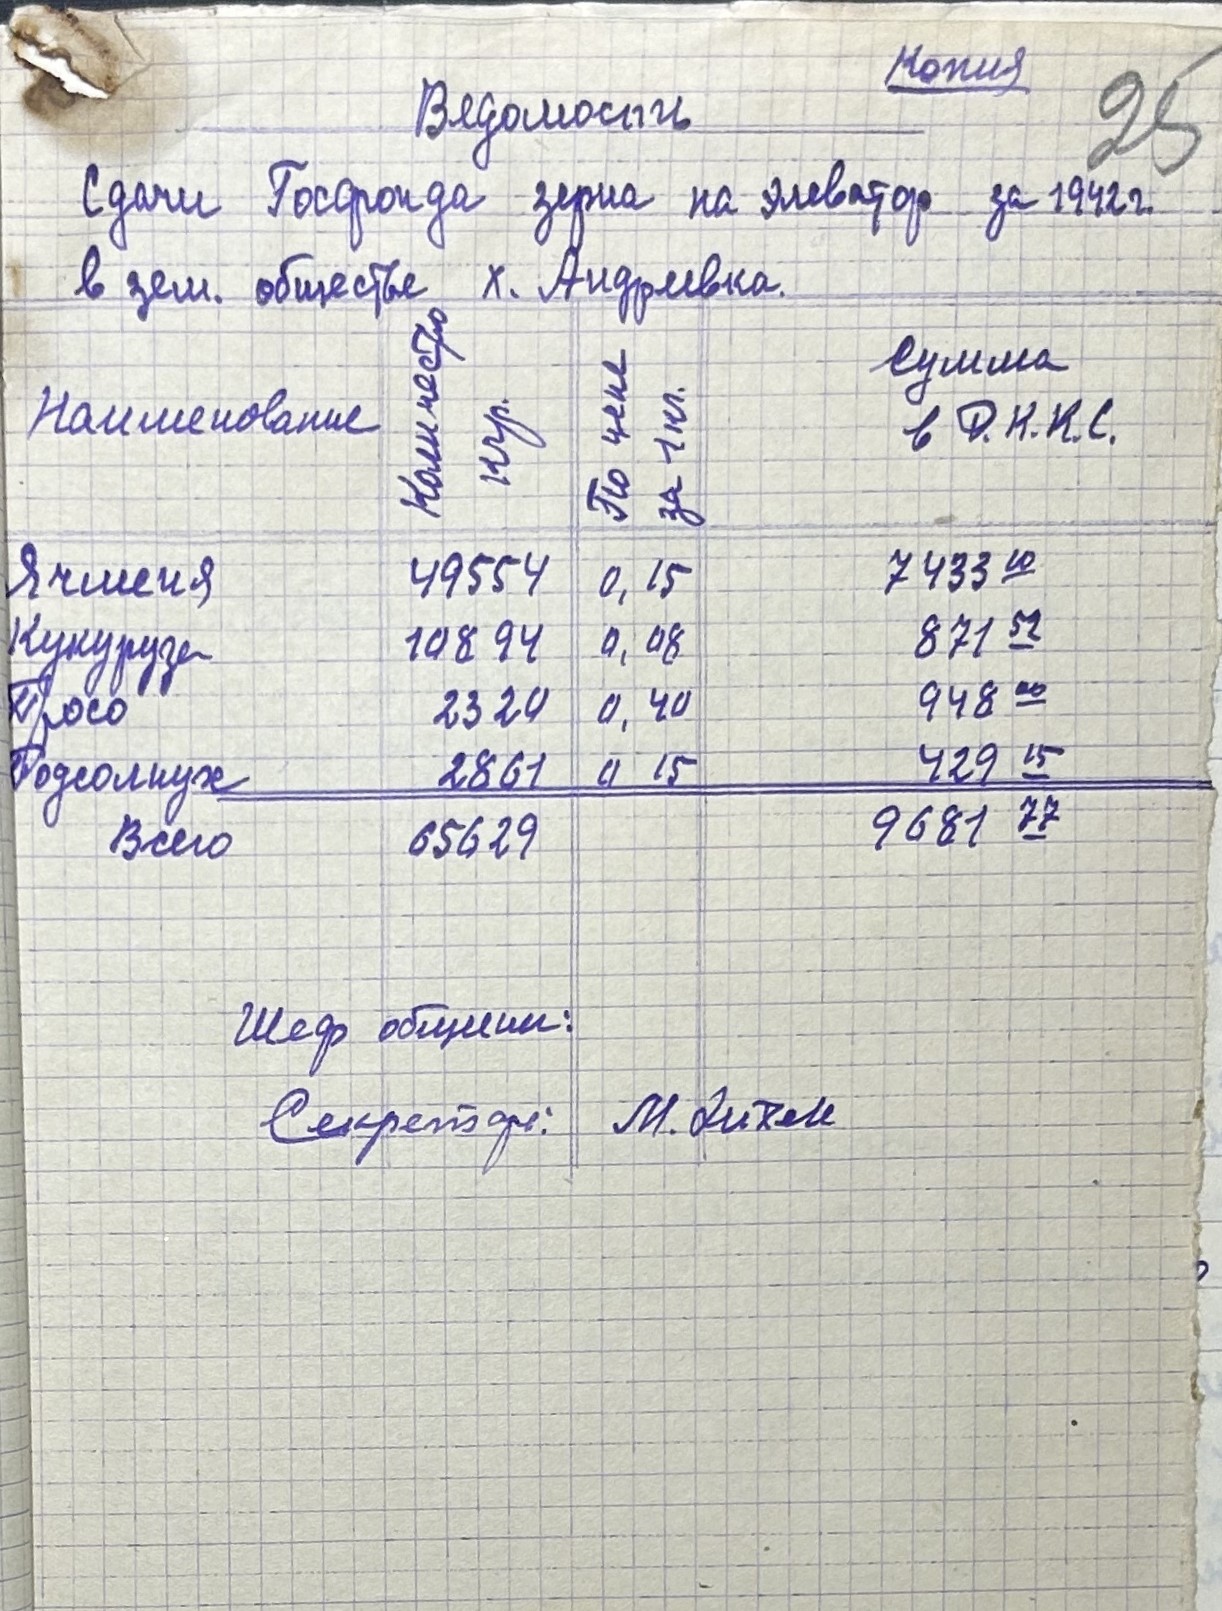 Копия
25
Вядомость
Сдачи Госфонда зерна на элеватор за 1942 г.
в зем. обществе х. Андреевка.
Наименование Количество кгр. По цене за 1 кл. Сумма в Р.К.К.С.
Ячменя 49554 0,15 7433 10
Кукуруза 10894 0,08 871 52
Просо 2320 0,40 948 00
Подсолнух 2861 0 15 429 15
Всего 65629 9681 77
Шеф общины:
Секретарь: М.